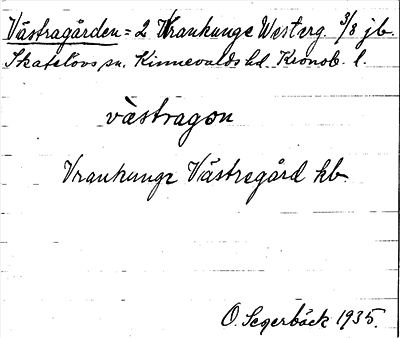 Västragården = 2 Vrankunge Westerg. 3/8 jb.
Skatelövs sn. Kinnevalds hd. Kronob. l.
vàstragon
Vrankunge Västregård kb.
O. Segerbäck 1935.